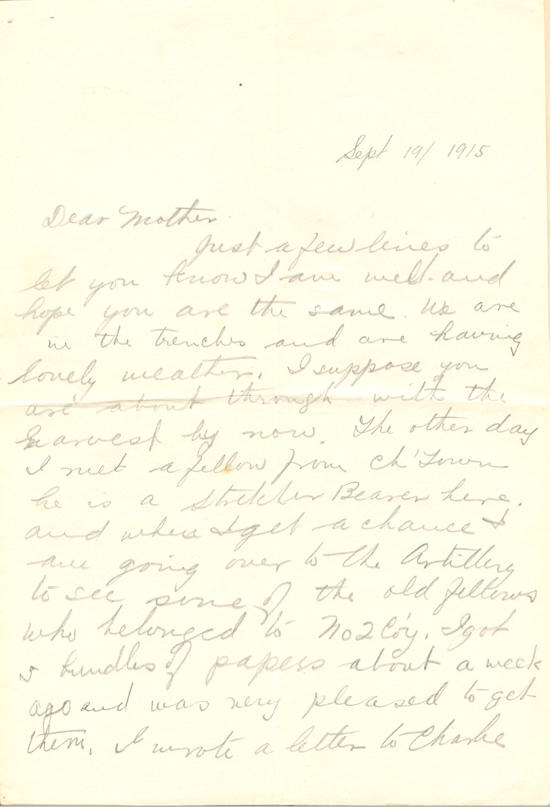 Sept 19/ 1915
Dear Mother
Just a few lines to
let you know I am well and
hope you are the same. We are
in the trenches and are having
lovely weather. I suppose you
are about through with the
Harvest by now. The other day
I met a fellow from Ch'Town
he is a stretcher Bearer here.
and when I get a chance I
am going over to the Artillery
to see some of the old fellows
who belonged to No2 Co'y. I got
bundles of papers about a week
ago and was very pleased to get
them. I wrote a letter to Charlie